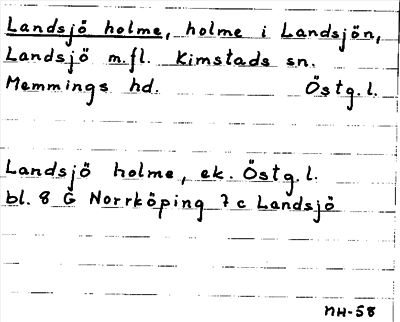 Landsjö holme, holme i Landsjön,
Landsjö m.fl. Kimstads sn.
Memmings hd. Östg.l.
Landsjö holme, ek. Östg.l.
bl. 8 G Norrköping 7 c Landsjö
NH-58